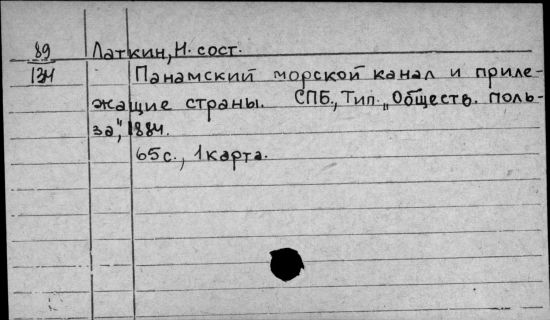 89 Латкин, Н. сост.
134 Панамский морской канал и приле-
жащие страны. СПБ., Тип. „Обществ. поль-
за", 1884.
65 с., 1 карта.